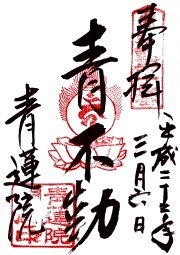 奉拝
平成二十三年
三月六日
青不動
青蓮院